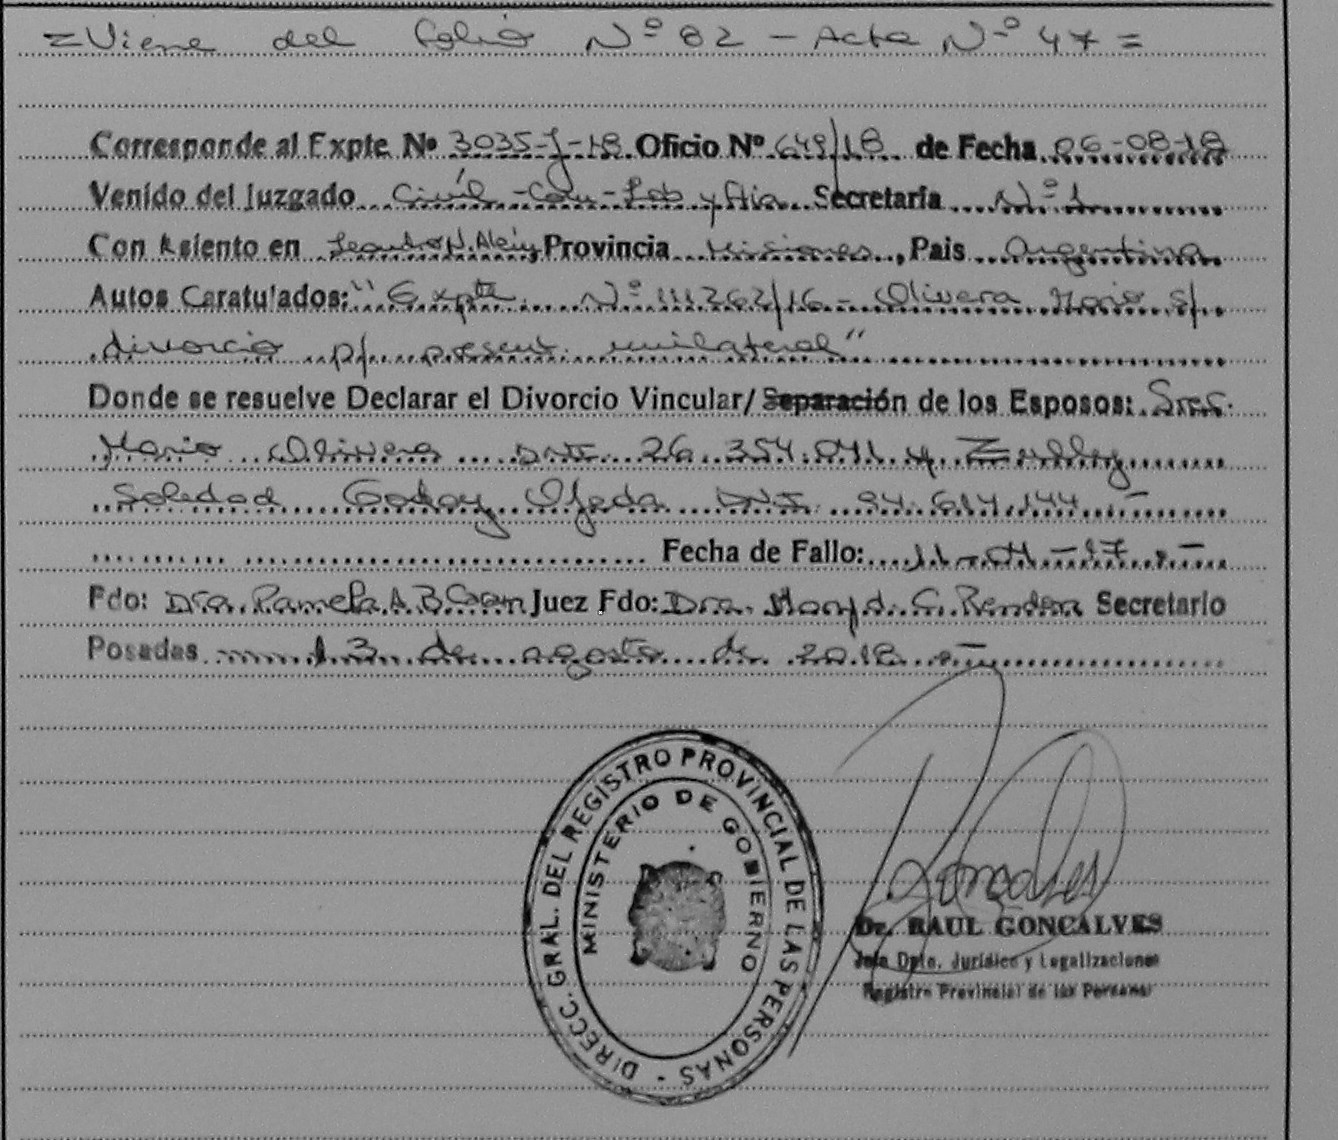 = Viene del folio Nº 82 - Acta Nº 47 =
Corresponde al Expte Nº 3035-J-18 Oficio Nº 649/18 de Fecha 06-08-18
Venido del Juzgado Civil - Com - Lab y flia Secretaría Nº 1
Con Asiento en Leandro N. Alem, Provincia Misiones, Pais Argentina
Autos Caratulados: "Expte Nº 111262/16 - Olivera Mario s/
divorcio p/ present. unilateral"
Donde se resuelve Declarar el Divorcio Vincular/ Separación de los Esposos: Sres.
Mario Olivera DNI 26.354.041 y Zully
Soledad Godoy Ojeda DNI 94.614.144.-
Fecha de Fallo: 11-04-17.-
Fdo: Dra. Pamela A. B. Juez Fdo: Dra. G. Rendon Secretario
Posadas 13 de agosto de 2018.-
DIRECC. GRAL. DEL REGISTRO PROVINCIAL DE LAS PERSONAS -
MINISTERIO DE GOBIERNO
Dr. RAUL GONCALVES
Jefe Dpto. Jurídico y Legalizaciones
Registro Provincial de las Personas